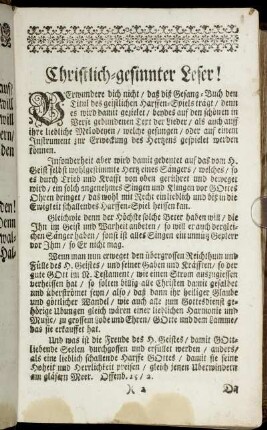 Christlich-gesinnter Leser!
Verwundere dich nicht / daß diß Gesang-Buch den
Titul des geistlichen Harffen-Spiels trägt / denn
es wird damit gezielet / beydes auf den schönen in
Verse gebundenen Text der Lieder / als auch auff
ihre liebliche Melodeyen / welche gesungen / oder auf einem
Instrument zur Erweckung des Hertzens gespielet werden
können.
Insonderheit aber wird damit gedeutet auf das vom H.
Geist selbst wohlgestimmte Hertz eines Sängers / welches / so
es durch Trieb und Krafft von oben gerühret und beweget
wird / ein solch angenehmes Singen und Klingen vor GOttes
Ohren bringet / das wohl mit Recht ein lieblich und biß in die
Ewigkeit schallendes Harffen-Spiel heissen kan.
Gleichwie denn der Höchste solche Beter haben will / die
Ihn im Geist und Warheit anbeten / so will er auch dergleichen
Sänger haben / sonst ist alles Singen ein unnütz Geplerr
vor Ihm / so Er nicht mag.
Wenn man nun erweget den übergrossen Reichthum und
Fülle des H. Geistes / und seiner Gaben und Kräfften / so der
gute GOtt im N. Testament / wie einen Strom auszugiessen
verheissen hat / so solten billig alle Christen damit gesalbet
und überströmet seyn / also / daß dann ihr heiliger Glaube
und göttlicher Wandel / wie auch alle zum Gottesdienst gehörige
Ubungen gleich wären einer lieblichen Harmonie und
Music / zu grossem Lobe und Ehren GOttes und dem Lamme /
das sie erkauffet hat.
Und was ist die Freude des H. Geistes / damit GOttliebende
Seelen durchgossen und erfüllet werden / anders /
als eine lieblich schallende Harffe GOttes / damit sie seine
Hoheit und Herrlichkeit preisen / gleich jenen Uberwindern
am gläsern Meer. Offenb. 15 / 2.
Da